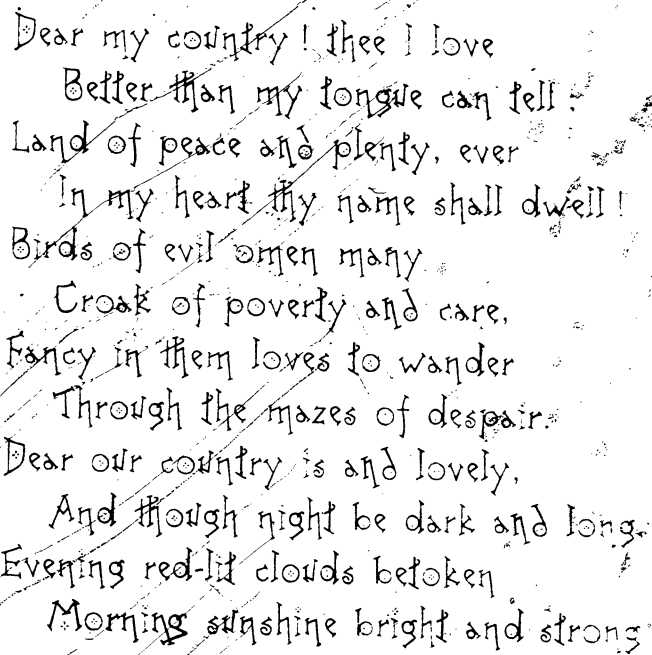 Dear my country! thee I love
Better than my tongue can tell:
Land of peace and plenty, ever
In my heart thy name shall dwell!
Birds of evil omen many
Croak of poverty and care,
Fancy in them loves to wander
Through the mazes of despair.
Dear our country is and lovely,
And though night be dark and long,
Evening red-lit clouds betoken
Morning sunshine bright and strong